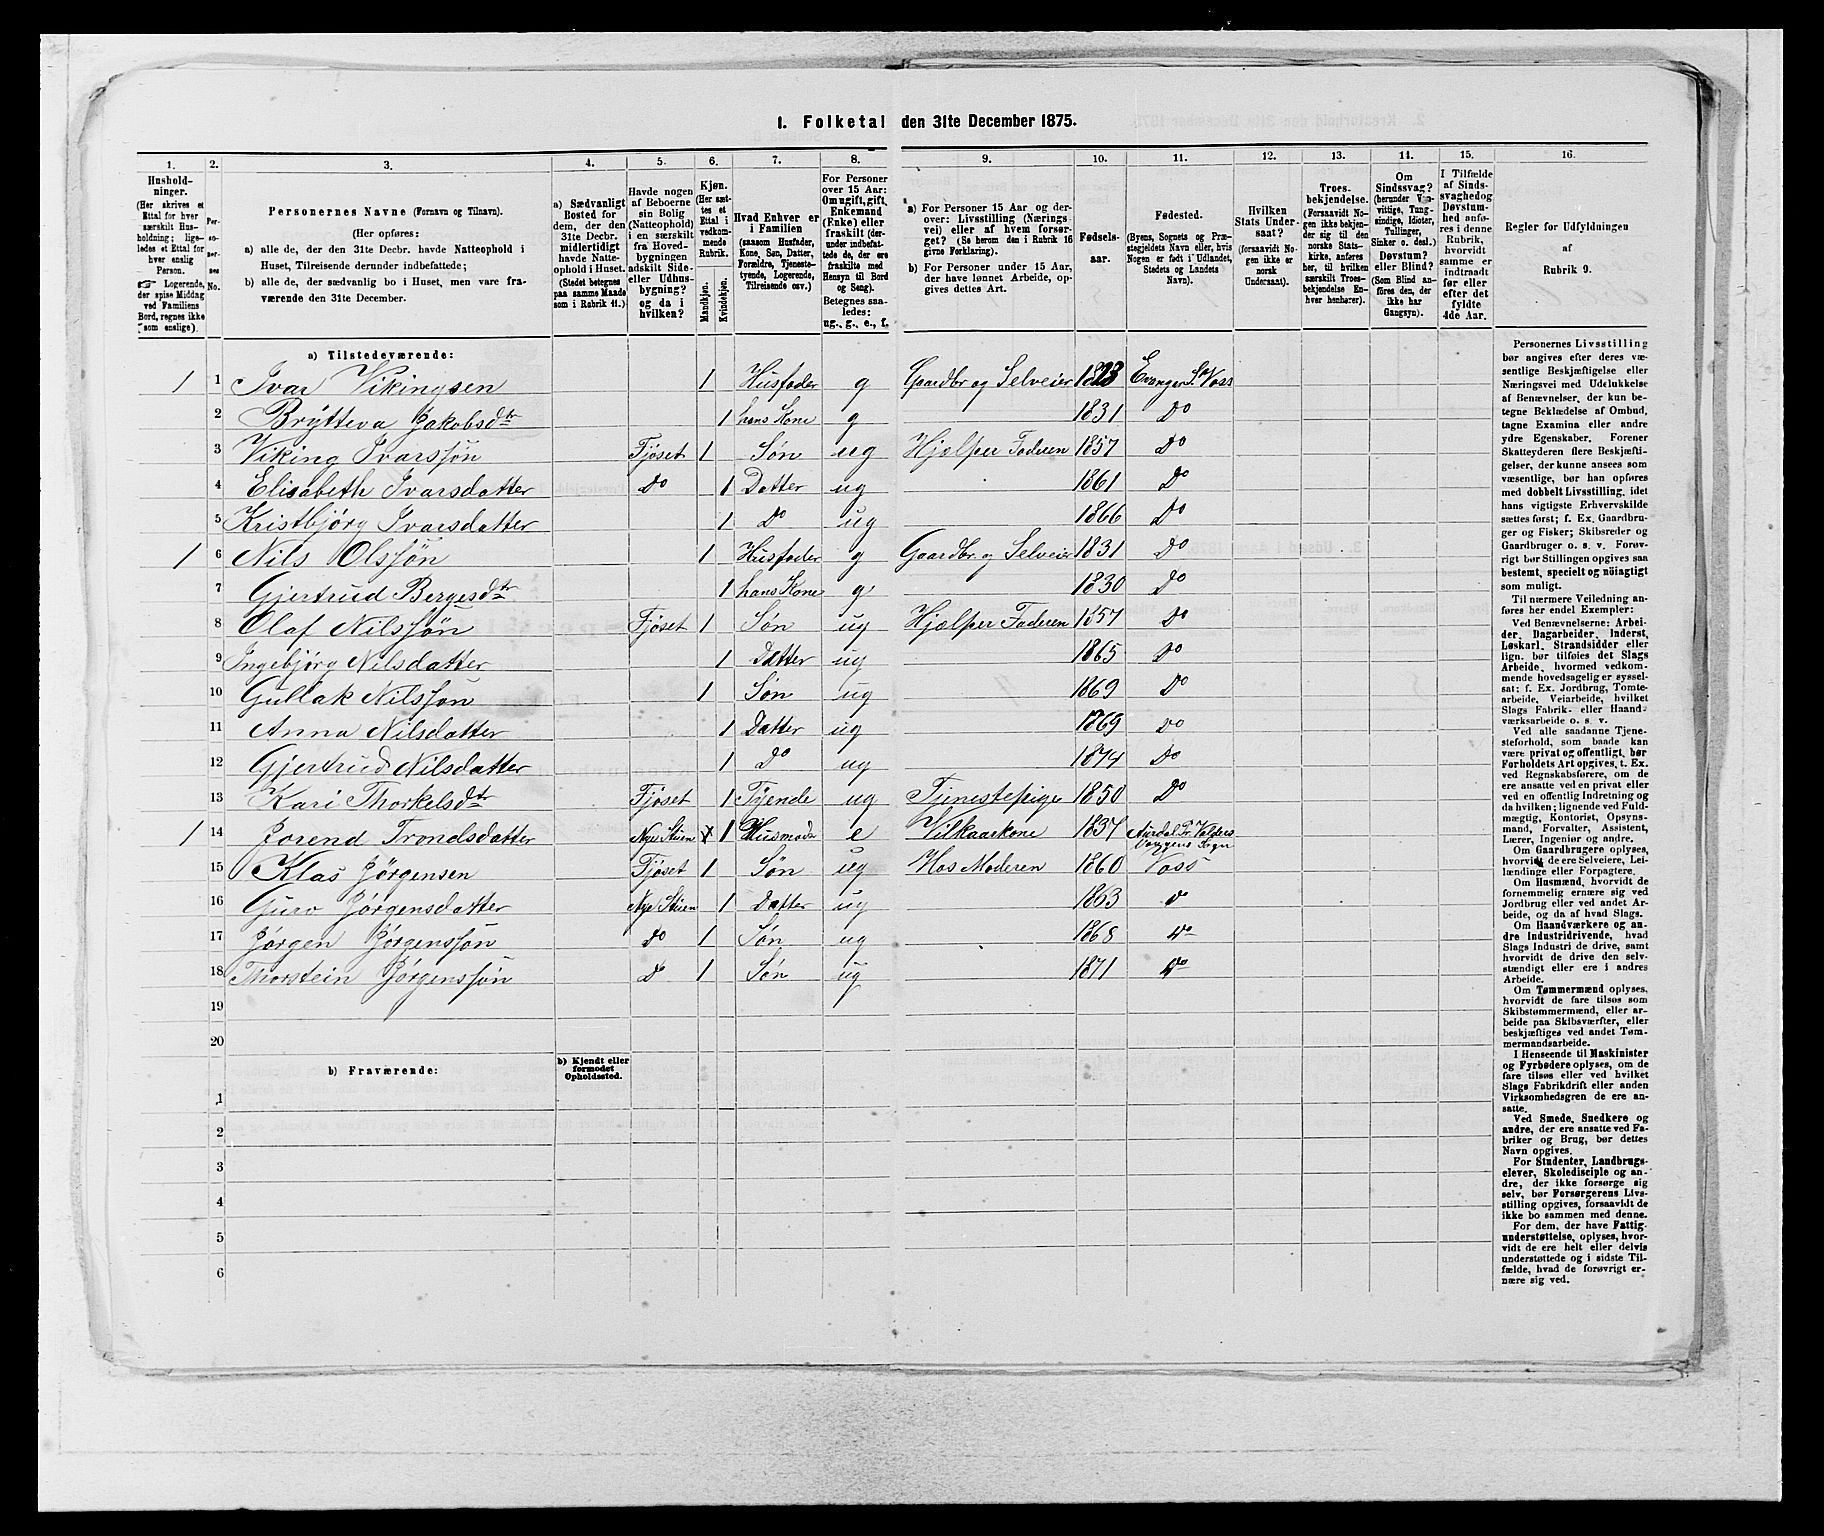 1. Folketal den 31te December 1875.
1. 2. 3. 4. 5. 6. 7. 8. 9. 10. 11. 12. 13. 14. 15. 16.
Hushold-
ninger.
(Her skrives et
Ettal for hver
særskilt Hus-
holdning; lige-
ledes et Ettal for
hver enslig
Person.
Logerende,
der spise Middag
ved Familiens
Bord, regnes ikke
som enslige).
Per-
sonernes
No.
Personernes Navne (Fornavn og Tilnavn).
(Her opføres:
a) alle de, der den 31te Decbr. havde Natteophold i
Huset, Tilreisende derunder indbefattede;
b) alle de, der sædvanlig bo i Huset, men vare fra-
værende den 31te December.
a) Sædvanligt
Bosted for
dem, der den
31te Decbr.
midlertidigt
havde Natte-
ophold i Huset.
(Stedet betegnes
paa samme Maade
som i Rubrik 11.)
Havde nogen
af Beboerne
sin Bolig
(Natteophold)
i en særskilt
fra Hoved-
bygningen
adskilt Side-
eller Udhus-
bygning?
og da i
hvilken?
Kjøn.
(Her sæt-
tes et
Ettal i
vedkom-
mende
Rubrik.
Mandkjøn.
Kvindekjøn.
Hvad Enhver er
i Familien
(saasom Husfader,
Kone, Søn, Datter,
Forældre, Tjeneste-
tyende, Logerende,
Tilreisende osv.)
For Personer
over 15 Aar:
Om ugift, gift,
Enkemand
(Enke) eller
fraskilt (der-
under indbefat-
tede de, der ere
fraskilte med
Hensyn til Bord
og Seng).
Betegnes saa-
ledes:
ug., g., e., f.
a) For Personer 15 Aar og der-
over: Livsstilling (Nærings-
vei) eller af hvem forsør-
get? (Se herom den i Rubrik 16
givne Forklaring).
b) For Personer under 15 Aar,
der have lønnet Arbeide, op-
gives dettes Art.
Fødsels-
aar.
Fødested.
(Byens, Sognets og Præ-
stegjeldets Navn eller, hvis
Nogen er født i Udlandet,
Stedets og Landets
Navn).
Hvilken
Stats Under-
saat?
(forsaavidt No-
gen ikke er
norsk
Undersaat).
Troes-
bekjendelse.
(Forsaavidt No-
gen ikke bekjen-
der sig til den
norske Stats-
kirke, anføres
her, til hvilken
særskilt Troes-
bekjendelse En-
hver henhører).
Om
Sindssvag?
(herunder Van-
vittige, Tung-
sindige, Idioter,
Tullinger,
Sinker o. desl.)
Døvstum?
eller Blind?
(Som Blind an-
føres den, der
ikke har
Gangsyn).
I Tilfælde
af Sinds-
svaghed og
Døvstum-
hed anfø-
res i denne
Rubrik,
hvorvidt
samme er
indtraadt
før eller
efter det
fyldte
4de Aar.
Regler for Udfyldningen
af
Rubrik 9.
a) Tilstedeværende:
1 1 Ivar Vikingsen 1 Husfader g Gaardbr og Selveier 1823 Evanger S. Voss
2 Brytteva Jakobsdtr 1 hans Kone g 1831 Do
3 Viking Ivarssøn Fjøset 1 Søn ug Hjælper Faderen 1857 Do
4 Elisabeth Ivarsdatter Do 1 Datter ug 1861 Do
5 Kristbjørg Ivarsdatter 1 Do ug 1866 Do
1 6 Nils Olssøn 1 Husfader g Gaardbr. og Selveier 1831 Do
7 Gjertrud Bergesdtr 1 hans Kone g 1830 Do
8 Olaf Nilssøn Fjøset 1 Søn ug Hjælper Faderen 1857 Do
9 Ingebjørg Nilsdatter 1 Datter ug 1865 Do
10 Gullak Nilssøn 1 Søn ug 1869 Do
11 Anna Nilsdatter 1 Datter ug 1869 Do
12 Gjertrud Nilsdatter 1 Do ug 1874 Do
13 Kari Thorkelsdtr Fjøset 1 Tyende ug Tjenestepige 1850 Do
1 14 Jorend Trondsdatter Nye Stuen 1 Husmoder e Vilkaarkone 1837 Aurdal Pr Valders
Sogn
15 Klas Jørgensen Fjøset 1 Søn ug Hos Moderen 1860 Voss
16 Guro Jørgensdatter Nye Stuen 1 Datter ug 1863 Do
17 Jørgen Jørgenssøn Do 1 Søn ug 1868 Do
18 Thorstein Jørgenssøn Do 1 Søn ug 1871 Do
19
20
b) Fraværende:
b) Kjendt eller
formodet
Opholdssted.
1
2
3
4
5
6
Personernes Livsstilling
bør angives efter deres væ-
sentlige Beskjæftigelse eller
Næringsvei med Udelukkelse
af Benævnelser, der kun be-
tegne Beklædelse af Ombud,
tagne Examina eller andre
ydre Egenskaber. Forener
Skatteyderen flere Beskjæfti-
gelser, der kunne ansees som
væsentlige, bør han opføres
med dobbelt Livsstilling, idet
hans vigtigste Erhvervskilde
sættes først; f. Ex. Gaardbru-
ger og Fisker; Skibsreder og
Gaardbruger o. s. v. Forøv-
rigt bør Stillingen opgives saa
bestemt, specielt og nöiagtigt
som muligt.
Til nærmere Veiledning an-
føres her endel Exempler:
Ved Benævnelserne: Arbei-
der, Dagarbeider, Inderst,
Løskarl, Strandsidder eller
lign. bør tilføies det Slags
Arbeide, hvormed vedkom-
mende hovedsagelig er syssel-
sat; f. Ex. Jordbrug, Tomte-
arbeide, Veiarbeide, hvilket
Slags Fabrik- eller Haand-
værksarbeide o. s. v.
Ved alle saadanne Tjene-
steforhold, som baade kan
være privat og offentligt, bør
Forholdets Art opgives, t. Ex.
ved Regnskabsførere, om de
ere ansatte ved en privat eller
ved en offentlig Indretning og
da hvilken; lignende ved Fuld-
mægtig, Kontorist, Opsyns-
mand, Forvalter, Assistent,
Lærer, Ingeniør og andre.
Om Gaardbrugere oplyses,
hvorvidt de ere Selveiere, Lei-
lændinge eller Forpagtere.
Om Husmænd, hvorvidt de
fornemmelig ernære sig ved
Jordbrug eller ved andet Ar-
beide, og da af hvad Slags.
Om Haandværkere og an-
dre Industridrivende, hvad
Slags Industri de drive, samt
hvorvidt de drive den selv-
stændigt eller ere i andres
Arbeide.
Om Tømmermænd oplyses,
hvorvidt de fare tilsøs som
Skibstømmermænd, eller ar-
beide paa Skibsværfter, eller
beskjæftiges ved andet Tøm-
mermandsarbeide.
I Henseende til Maskinister
og Fyrbødere oplyses, om de
fare tilsøs eller ved hvilket
Slags Fabrikdrift eller anden
Virksomhedsgren de ere an-
satte.
Ved Smede, Snedkere og
andre, der ere ansatte ved Fa-
briker og Brug, bør dettes
Navn opgives.
For Studenter, Landbrugs-
elever, Skoledisciple og an-
dre, der ikke forsørge sig
selv, bør Forsørgerens Livs-
stilling opgives, forsaavidt de
ikke bo sammen med denne.
For dem, der have Fattig-
understøttelse, oplyses, hvor-
vidt de ere helt eller delvis
understøttede og i sidste Til-
fælde, hvad de forøvrigt er-
nære sig ved.